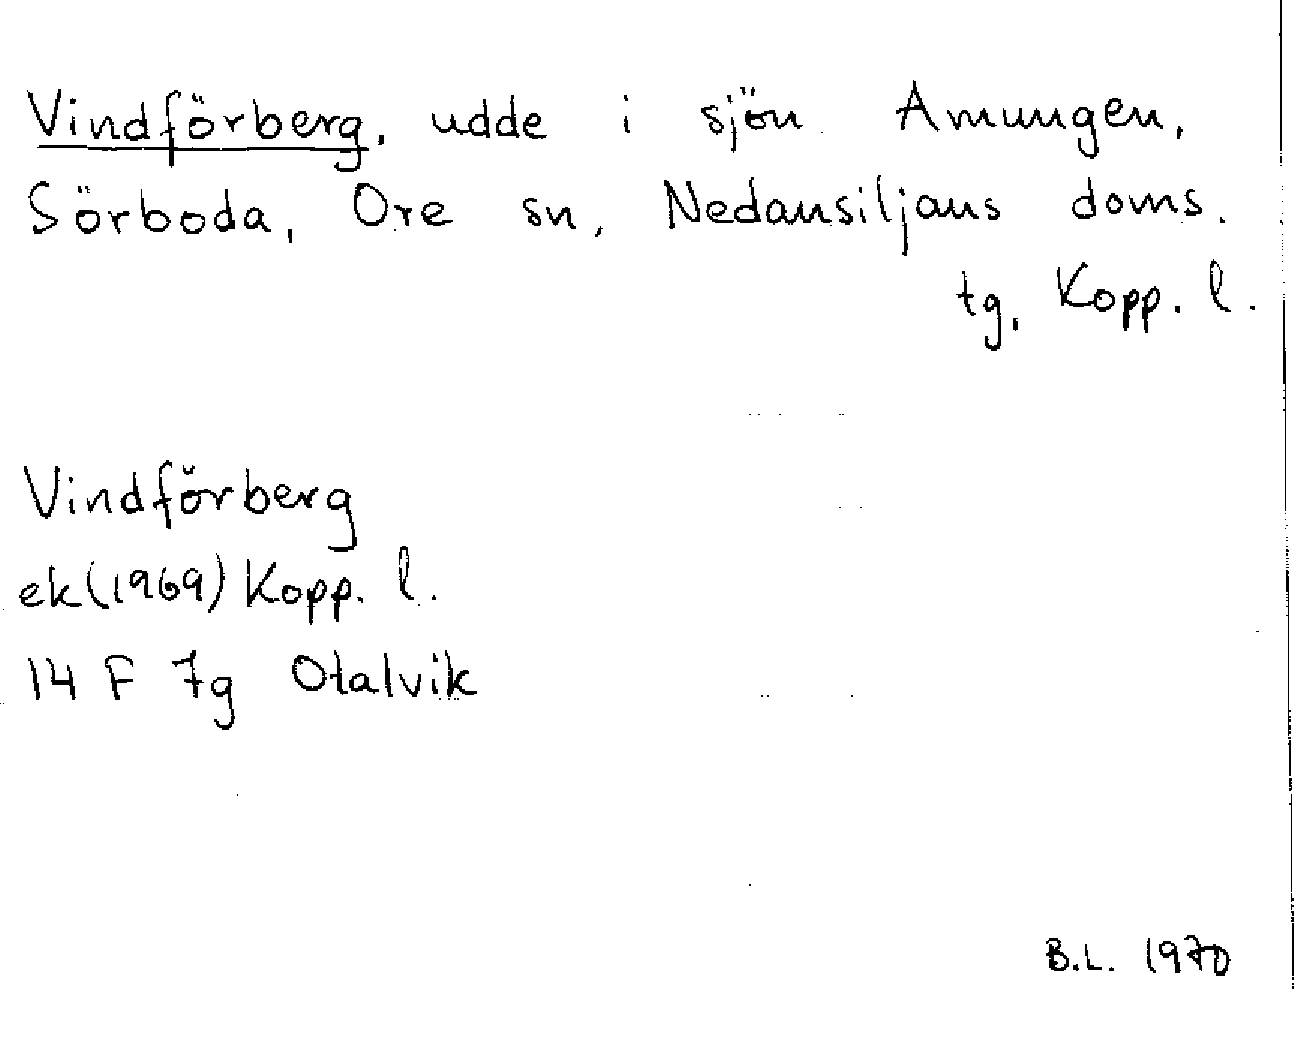 Vindförberg, udde i sjön Amungen,
Sörboda, Ore sn, Nedansiljans doms.
tg, Kopp. l.
Vindförberg
ek(1969) Kopp. l.
14 F 7g Otalvik
B.L. 1970